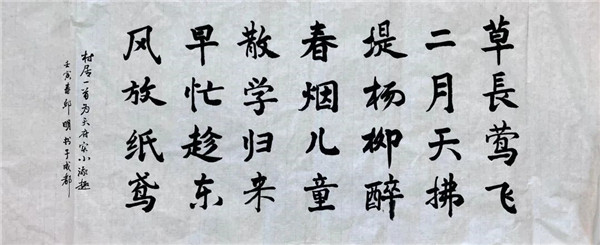 草長莺飞
二月天拂
堤杨柳醉
春烟儿童
散学归来
早忙趁东
风放纸鸢
村居一首为天府家小
壬寅春邱明书于成都